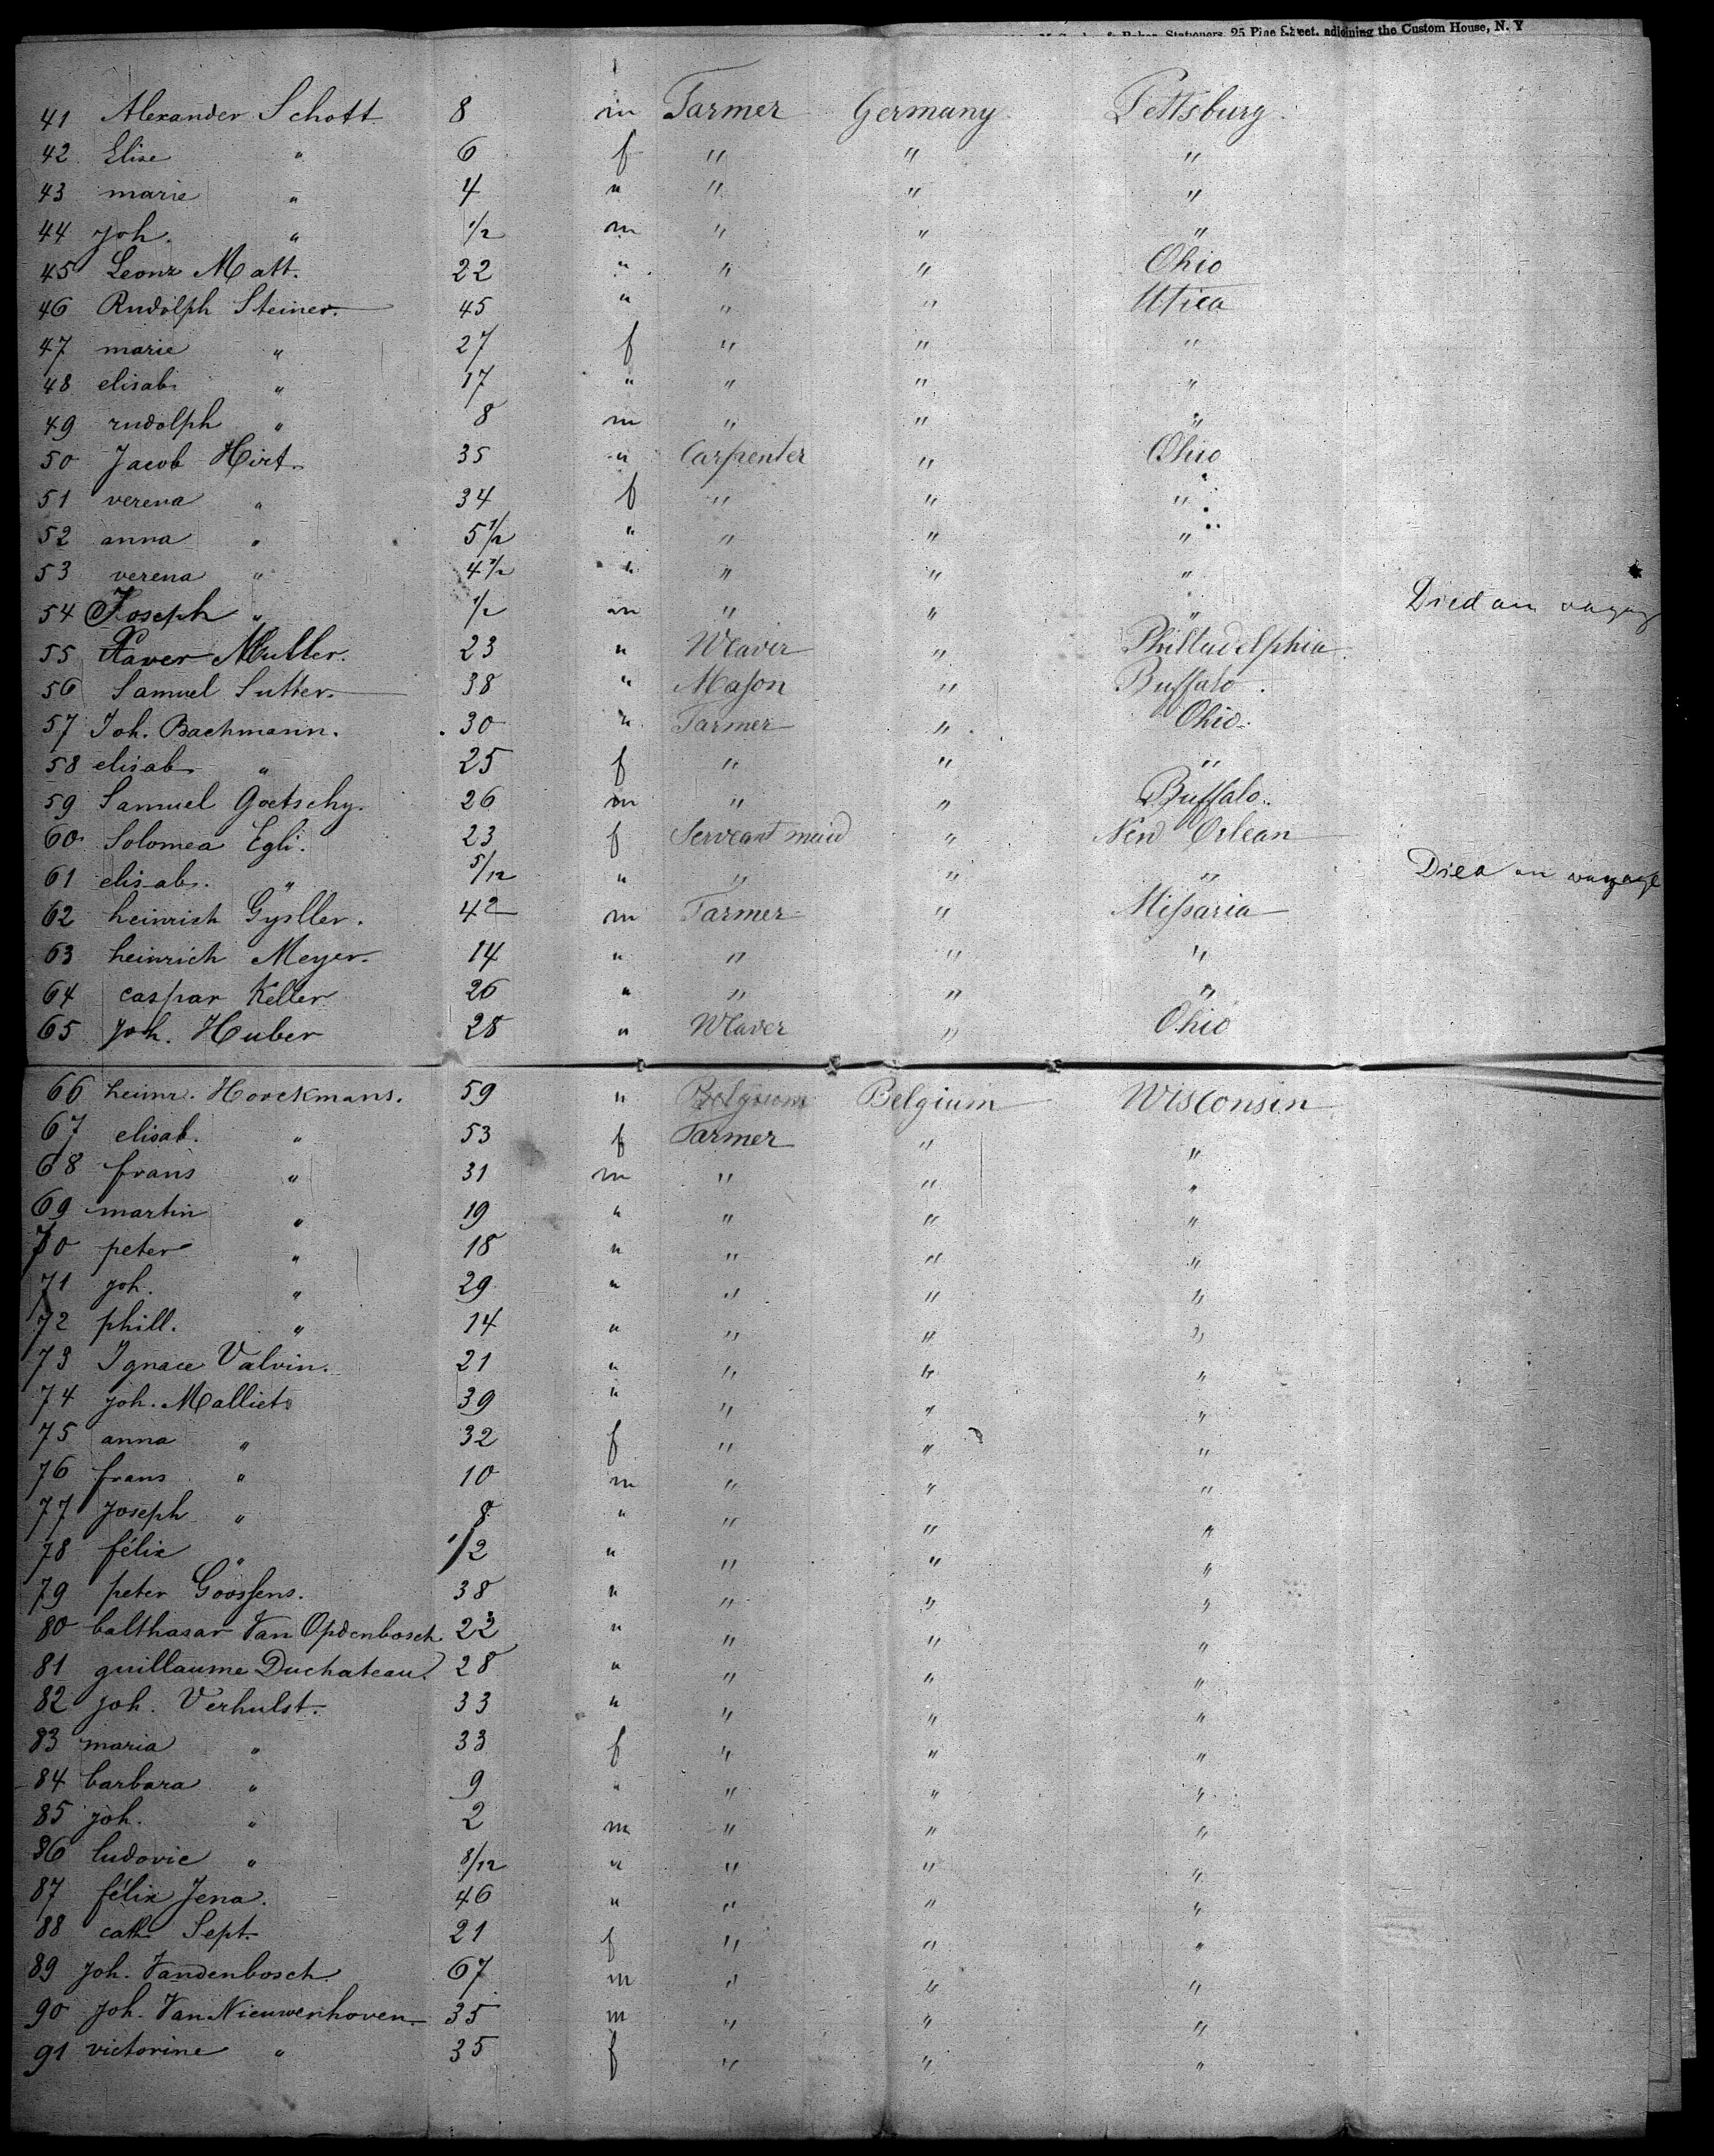 Stationers, 25 Pine Street, adjoining the Custom House, N. Y
41 Alexander Schott 8 m Farmer Germany Pettsburg
42 Elise " 6 f " " "
43 marie " 4 " " " "
44 joh. " 1/2 m " " "
45 Leonz Matt. 22 " " " Ohio
46 Rudolph Steiner. 45 " " " Utica
47 marie " 27 f " " "
48 elisab. " 17 " " " "
49 rudolph " 8 m " " "
50 Jacob Hirt. 35 " Carpenter " Ohio
51 verena " 34 f " " "
52 anna " 5 1/2 " " " "
53 verena " 4 1/2 " " " "
54 Joseph " 1/2 m " " " Died on voyag
55 Xaver Muller. 23 " Weaver " Philladelphia
56 Samuel Sutter. 38 " Mason " Buffalo
57 Joh. Bachmann. 30 " Farmer " Ohio
58 elisab. " 25 f " " "
59 Samuel Goetschy. 26 m " " Buffalo
60 Solomea Egli. 23 f Serveant maid " New Orlean
61 elisab. " 5/12 " " " " Died on voyage
62 heinrich Gysller. 42 m Farmer " Missaria
63 heinrich Meyer. 14 " " " "
64 caspar Keller 26 " " " "
65 joh. Huber 28 " Weaver " Ohio
66 heinr. Horckmans. 59 " Belgium Belgium Wisconsin
67 elisab. " 53 f Farmer " "
68 frans " 31 m " " "
69 martin " 19 " " " "
70 peter " 18 " " " "
71 joh. " 29 " " " "
72 phill. " 14 " " " "
73 Ignace Valvin. 21 " " " "
74 joh. Malliet 39 " " " "
75 anna " 32 f " " "
76 frans " 10 m " " "
77 joseph " 8 " " " "
78 félix " 1/2 " " " "
79 peter Goossens. 38 " " " "
80 balthasar Van Opdenbosch 22 " " " "
81 guillaume Duchateau. 28 " " " "
82 joh. Verhulst. 33 " " " "
83 maria " 33 f " " "
84 barbara " 9 " " " "
85 joh. " 2 m " " "
86 ludovic " 8/12 " " " "
87 félix Jena. 46 " " " "
88 cath. Sept. 21 f " " "
89 joh. Vandenbosch. 67 m " " "
90 joh. Van Nieuwenhoven. 35 m " " "
91 victorine " 35 f " " "